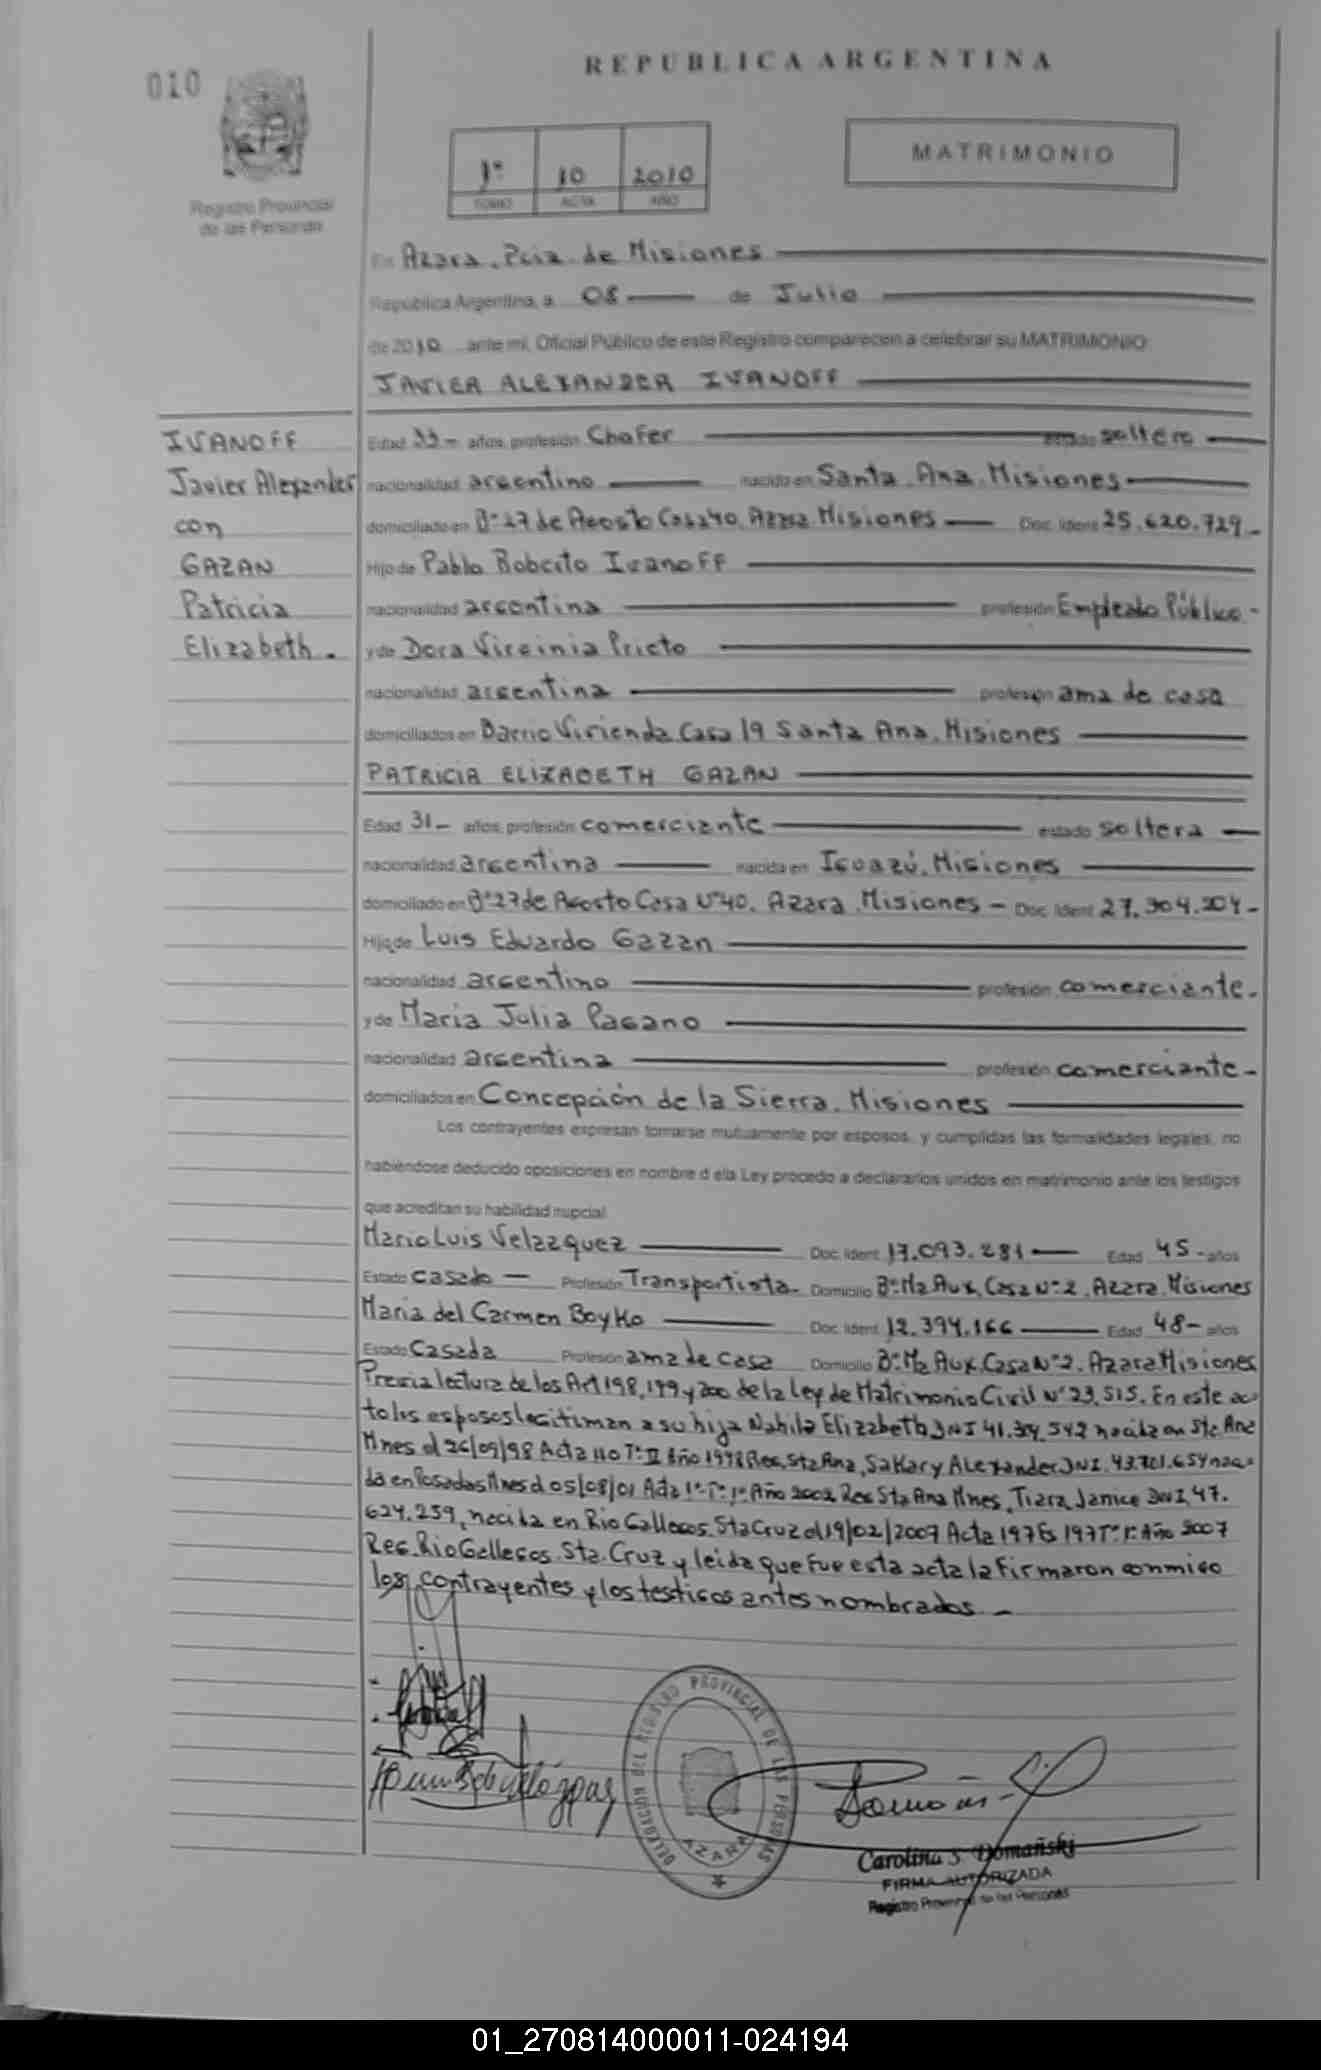 REPUBLICA ARGENTINA
010
MATRIMONIO
1º 10 2010
TOMO ACTA AÑO
Registro Provincial
de las Personas
En Azara. Pcia. de Misiones
República Argentina, a 08 de Julio
de 2010 ante mi, Oficial Público de este Registro comparecen a celebrar su MATRIMONIO
JAVIER ALEXANDER IVANOFF
IVANOFF
Javier Alexander
con
GAZAN
Patricia
Elizabeth.
Edad 33 años, profesión Chofer estado soltero
nacionalidad argentino nacido en Santa Ana. Misiones
domiciliado en Bº 27 de Agosto Casa 40. Azara Misiones Doc. Ident 25.620.729
Hijo de Pablo Roberto Ivanoff
nacionalidad argentina profesión Empleado Público
y de Dora Virginia Prieto
nacionalidad argentina profesión ama de casa
domiciliados en Barrio Vivienda Casa 19 Santa Ana. Misiones
PATRICIA ELIZABETH GAZAN
Edad 31 años, profesión comerciante estado soltera
nacionalidad argentina nacida en Iguazú. Misiones
domiciliado en Bº 27 de Agosto Casa Nº 40. Azara. Misiones Doc. Ident 27.304.204
Hijo de Luis Eduardo Gazan
nacionalidad argentino profesión comerciante.
y de Maria Julia Pagano
nacionalidad argentina profesión comerciante
domiciliados en Concepción de la Sierra. Misiones
Los contrayentes expresan tomarse mutuamente por esposos, y cumplidas las formalidades legales, no
habiéndose deducido oposiciones en nombre d ela Ley procedo a declararlos unidos en matrimonio ante los testigos
que acreditan su habilidad nupcial
Mario Luis Velazquez Doc. Ident 17.093.281 Edad 45 años
Estado casado Profesión Transportista Domicilio Bº Ma Aux. Casa Nº 2. Azara. Misiones
Maria del Carmen Boyko Doc. Ident 12.394.166 Edad 48 años
Estado Casada Profesión ama de casa Domicilio Bº Ma Aux. Casa Nº 2. Azara Misiones
Previa lectura de los Art 198, 199 y 200 de la Ley de Matrimonio Civil Nº 23.515. En este ac-
to los esposos legitiman a su hija Nahila Elizabeth DNI 41.304.542 nacida en Sta. Ana
Mnes el 26/09/98 Acta 110 Tº II Año 1998 Reg. Sta Ana, Sakary Alexander DNI. 43.701.654 naci-
da en Posadas Mnes el 05/08/01 Acta 1º Tº 1º Año 2002 Reg Sta Ana Mnes, Tiara Janice DNI 47.
624.259, nacida en Rio Gallegos. Sta Cruz el 19/02/2007 Acta 197 Fs 197 Tº 1º Año 2007
Reg. Rio Gallegos. Sta. Cruz y leida que fue esta acta la firmaron conmigo
los contrayentes y los testigos antes nombrados.
DELEGACION DEL REGISTRO PROVINCIAL DE LAS PERSONAS
AZARA
Carolina S. Domañski
FIRMA AUTORIZADA
Registro Provincial de las Personas
01_270814000011-024194